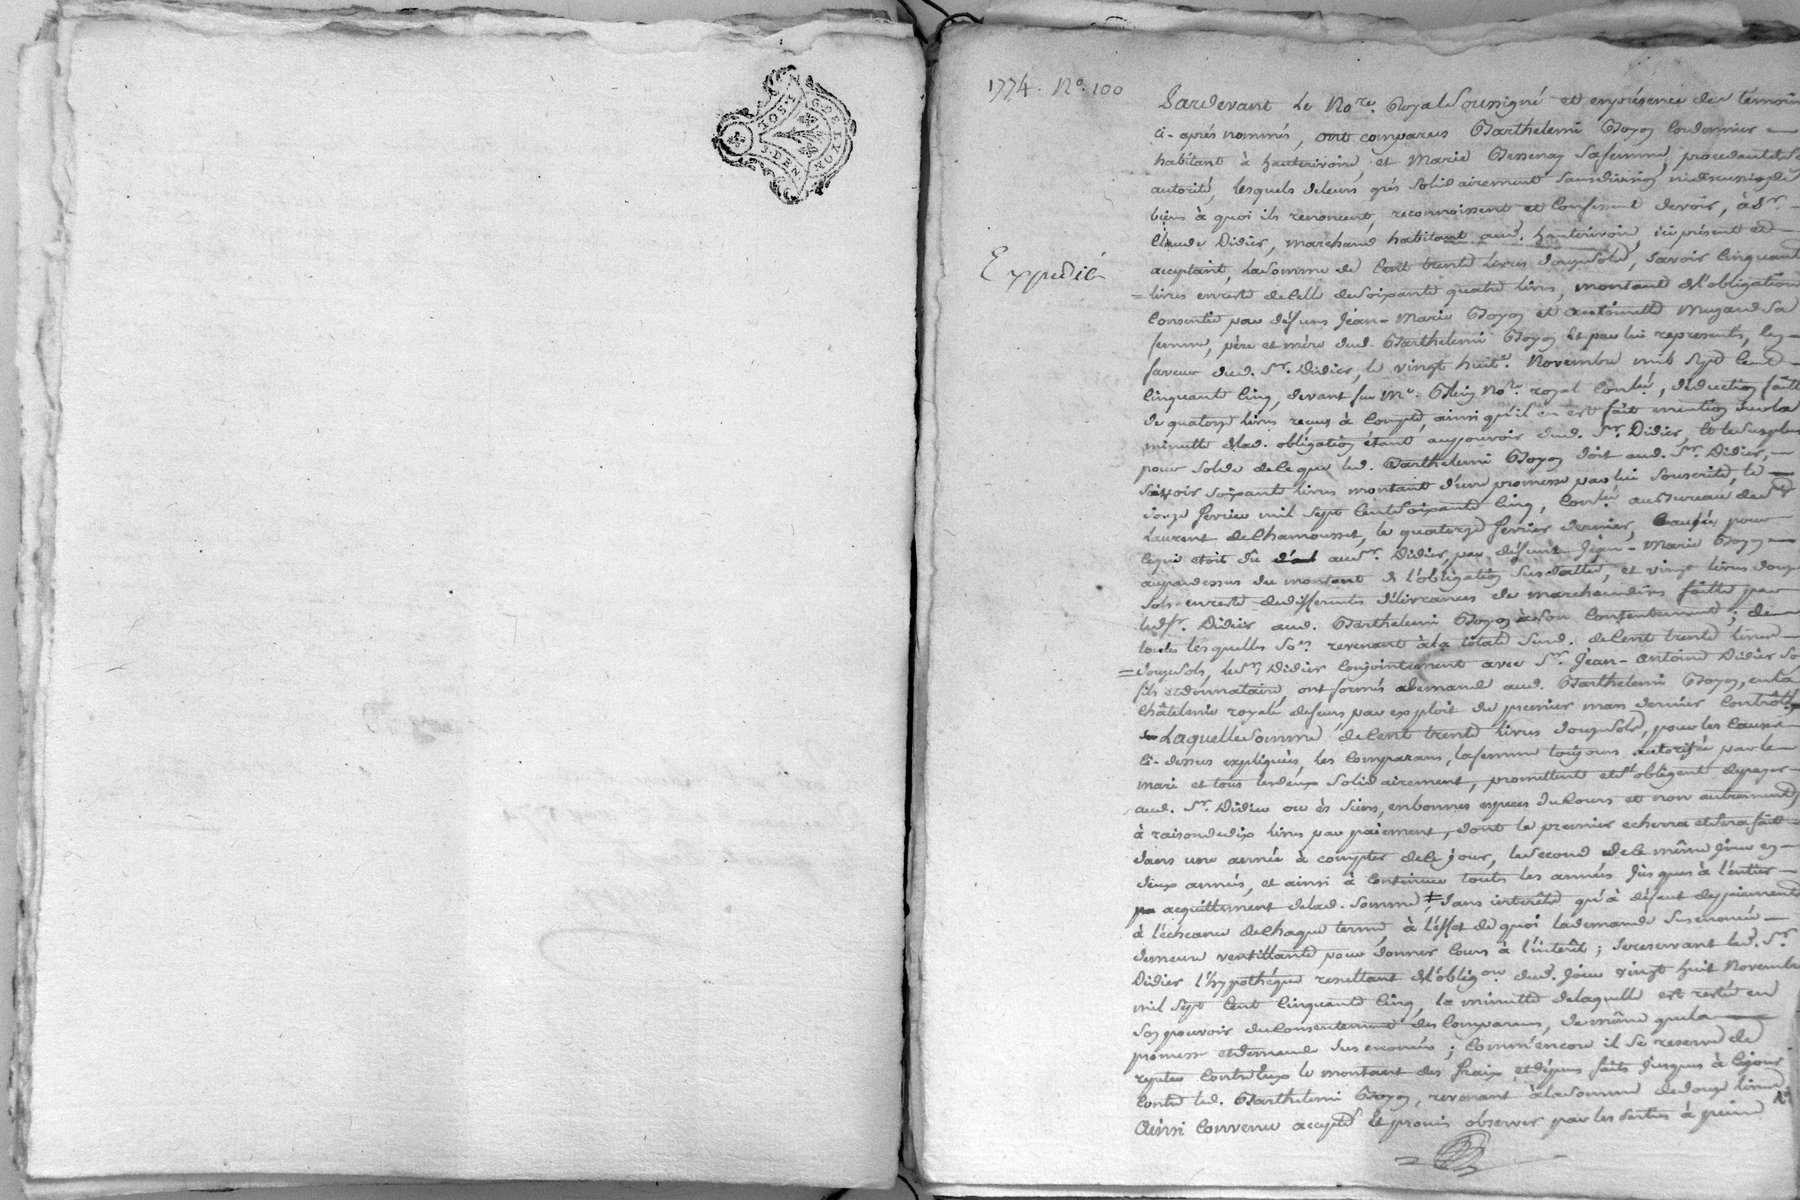 1774. No. 100
Expedié
Pardevant Le Nore. Royal Soussigné et en présence des témoins
ci-après nommés, ont comparus Barthelemi Boyon Cordonnier
habitant à hauterivoire, et Marie Bessenay sa femme, procedante de Son
autorité, lesquels de leurs grés solidairement sans division ni discussion de
biens à quoi ils renoncent, reconnoissent et Confessent devoir, à Sr.
Claude Didier, marchand habitant aud. hauterivoire, ici présent et
acceptant, la Somme de Cent trente livres douze Sols, Savoir Cinquante
livres en reste de Celle de Soixante quatre livres, montant de l'obligation
Consentie par défunts Jean-Marie Boyon et antoinette Mugand Sa
femme, père et mère dud. Barthelemi Boyon et par lui represents, en
faveur dud. Sr. Didier, le vingt huite. Novembre mil Sept Cent
Cinquante Cinq, devant feu Me. Nore. royal Conlé, déduction faitte
de quatorze livres reçus à Compte, ainsi qu'il en est fait mention sur la
minutte de lad. obligation étant au pouvoir dud. Sr. Didier, et le Surplus
pour Solde de Ce que led. Barthelemi Boyon doit aud. Sr. Didier,
Sávoir soixante livres montant d'une promesse par lui Souscrite, le
douze fevrier mil Sept Cent Soixante Cinq, Conlé au Bureau de St
Laurent de Chamousset, le quatorze fevrier dernier, Causée pour
Ce qui etoit dû aud. Sr. Didier, par défunt Jean-Marie Boyon
au par dessus du montant de l'obligation Susdatte, et vingt livres douze
Sols en reste de differentes délivrances de marchandises faitte par
led. Sr. Didier aud. Barthelemi Boyon à Son Consentement; de
toutes lesquelles Soes. revenant à la totale Susd. de Cent trente livres
douze Sols, led. Sr. Didier Conjointement avec Sr. Jean-antoine Didier So
fils et donnataire, ont formés demande aud. Barthelemi Boyon, en la
Châtelenie royale de feurs par exploit du premier mars dernier Contrôlé
Laquelle Somme de Cent trente livres douze Sols, pour les Causes
Ci-dessus expliquées, les Comparans, la femme toujours autorisée par le
mari et tous les deux Solidairement, promettent et S'obligent de payer
aud. Sr. Didier ou ès Siens, en bonnes especes du Cours et non autrement
à raison de dix livres par paiement, dont le premier echerra et Sera fait
dans une année à compter de Ce jour, le Second de Ce même jour en
deux années, et ainsi à Continuer touttes les années Jusques à l'entier
acquittement de lad. Somme, sans interêts qu'à défaut de paiement
à l'échéance de Chaque terme, à l'effet de quoi la demande Susenoncée
demeure ventillante pour donner Cours à l'interêt; Se reservant led. Sr.
Didier l'hypothéque resultant de l'obligon. dud. Jour vingt huit Novembre
mil Sept Cent Cinquante Cinq, la minutte de laquelle est restée en
Son pouvoir du Consentement des Comparans, de même que la
promesse et demande Sus enoncées; Comm'encore il Se reserve de
repeter Contr'Eux le montant des fraix et dépens faits Jusques à Ce jour
Contre led. Barthelemi Boyon, revenant à la Somme de douze livres
Ainsi Convenu accepté et promis observer par les Parties à peine